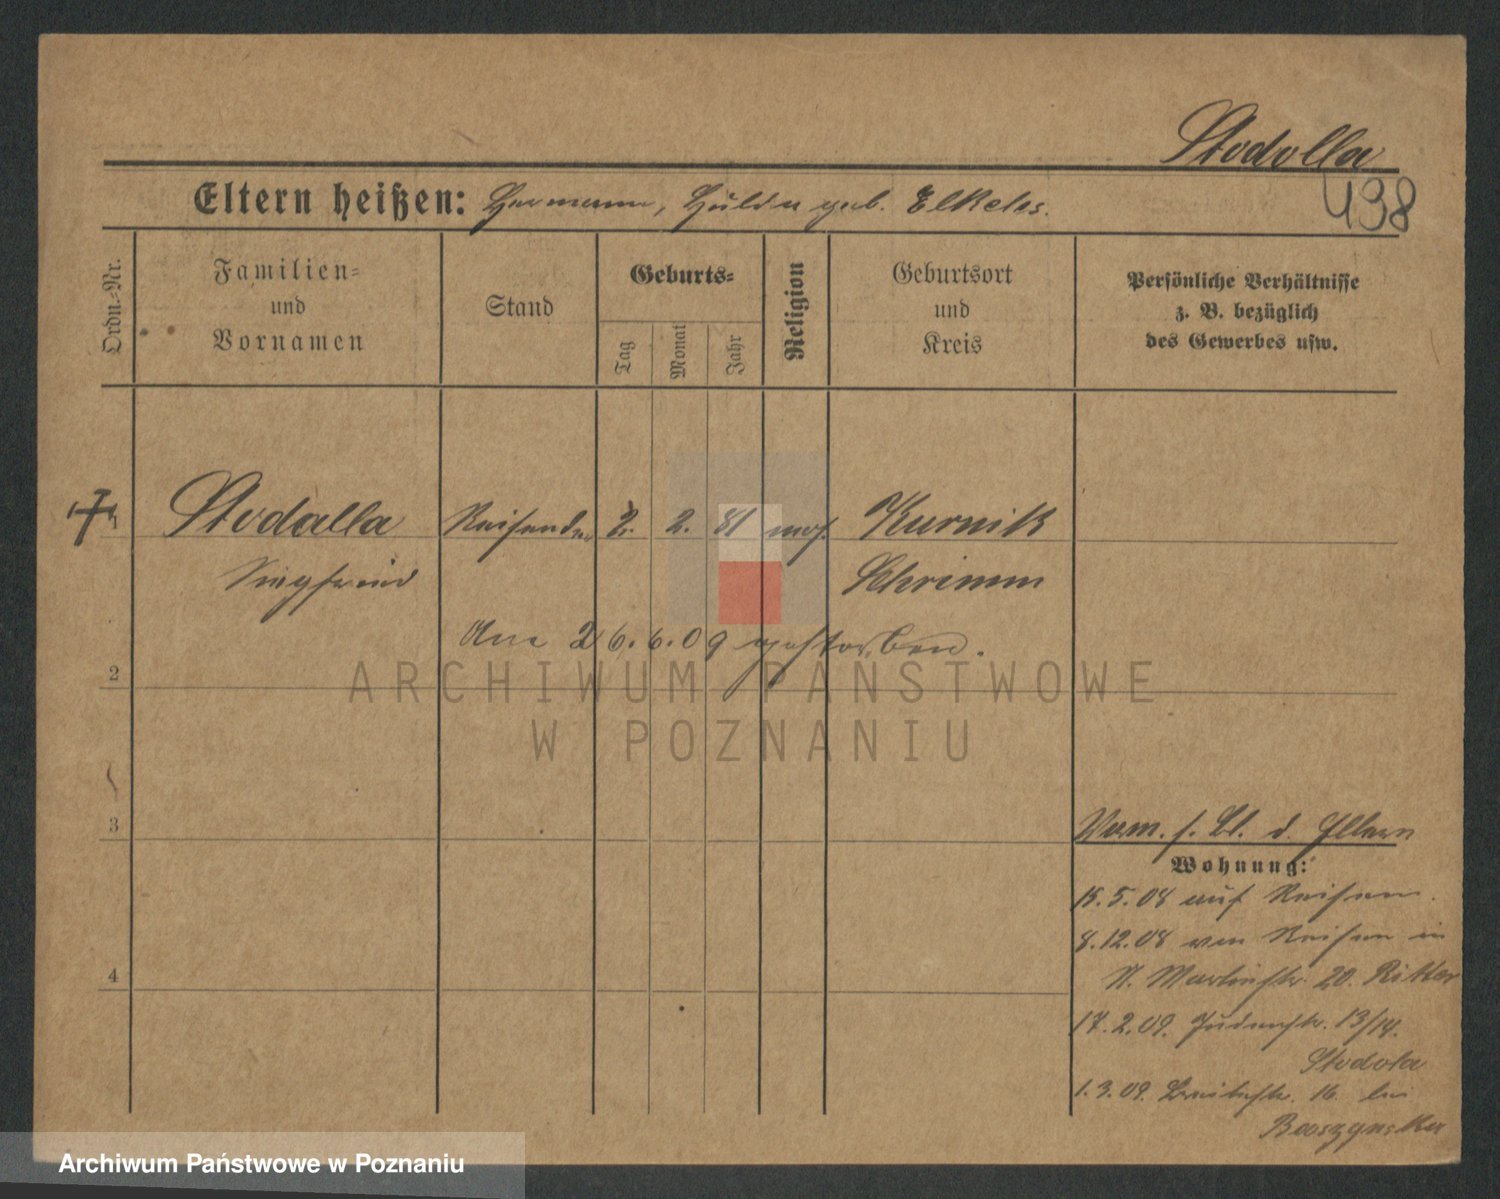 Stodolla
438
Eltern heißen: Hermann, Hulda geb. Elkeles.
Ordn.-Nr.
Familien-
und
Vornamen
Stand
Geburts-
Tag
Monat
Jahr
Religion
Geburtsort
und
Kreis
Persönliche Verhältnisse
z. B. bezüglich
des Gewerbes usw.
Stodalla Reisender 2. 2. 81 mos. Kurnik
Siegfried Schrimm
Am 26.6.09 gestorben.
2
3
4
Vorm. s. Bl. d. Eltern
Wohnung:
15.5.08 auf Reisen.
8.12.08 von Reisen in
St. Martinstr. 20. Ritter
17.2.09. Judenstr. 13/14.
Stodola
1.3.09. Breitestr. 16. bei
ARCHIWUM PAŃSTWOWE
W POZNANIU
Archiwum Państwowe w Poznaniu